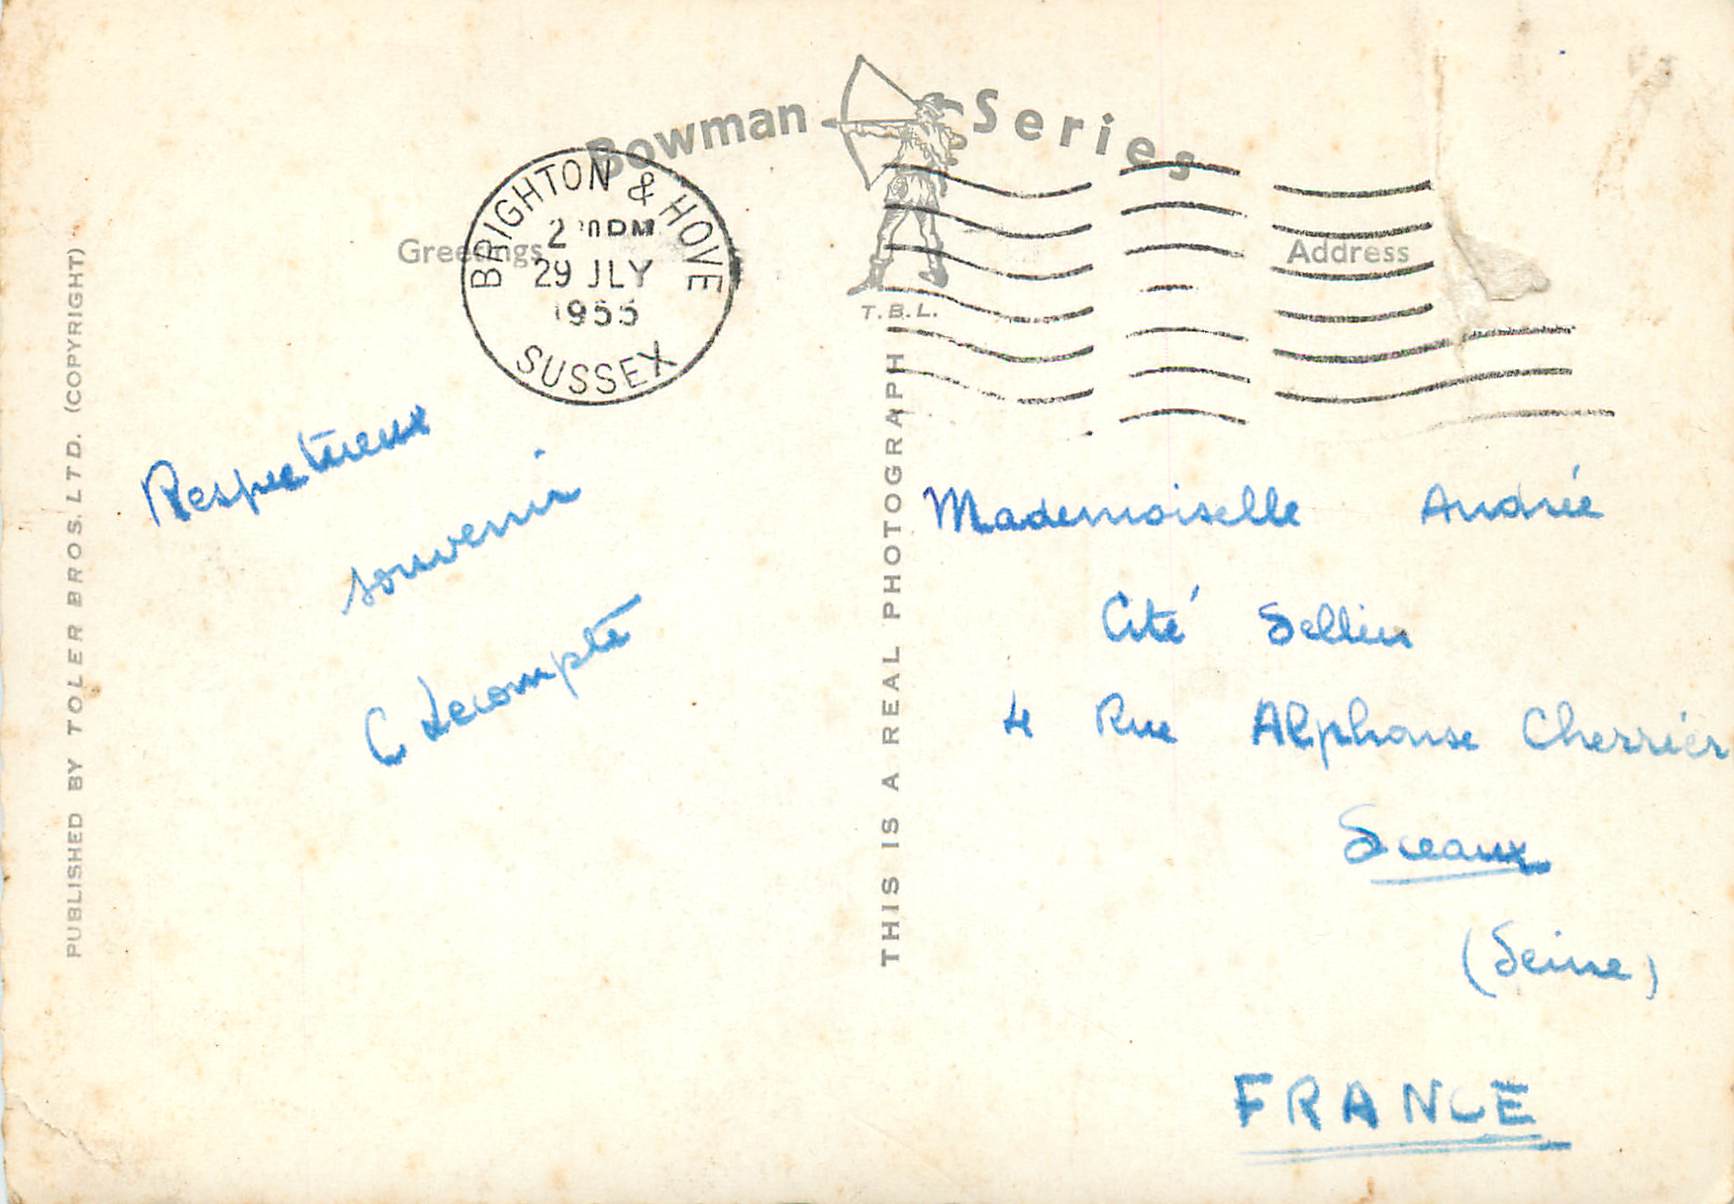 Bowman Series
Greetings
Address
BRIGHTON & HOVE
29 JLY
SUSSEX
T.B.L.
PUBLISHED BY TOLER BROS. LTD. (COPYRIGHT)
THIS IS A REAL PHOTOGRAPH
Respectueux
souvenir
C Lecompte
Mademoiselle Andrée
Cité
4 Rue Alphonse Cherrier
Sceaux
(Seine)
FRANCE